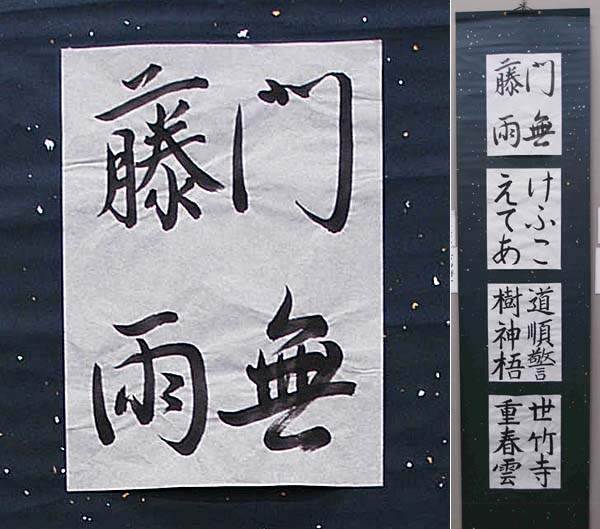 門無
藤雨
門無
藤雨
けふこ
えてあ
道順警
樹神梧
世竹寺
重春雲